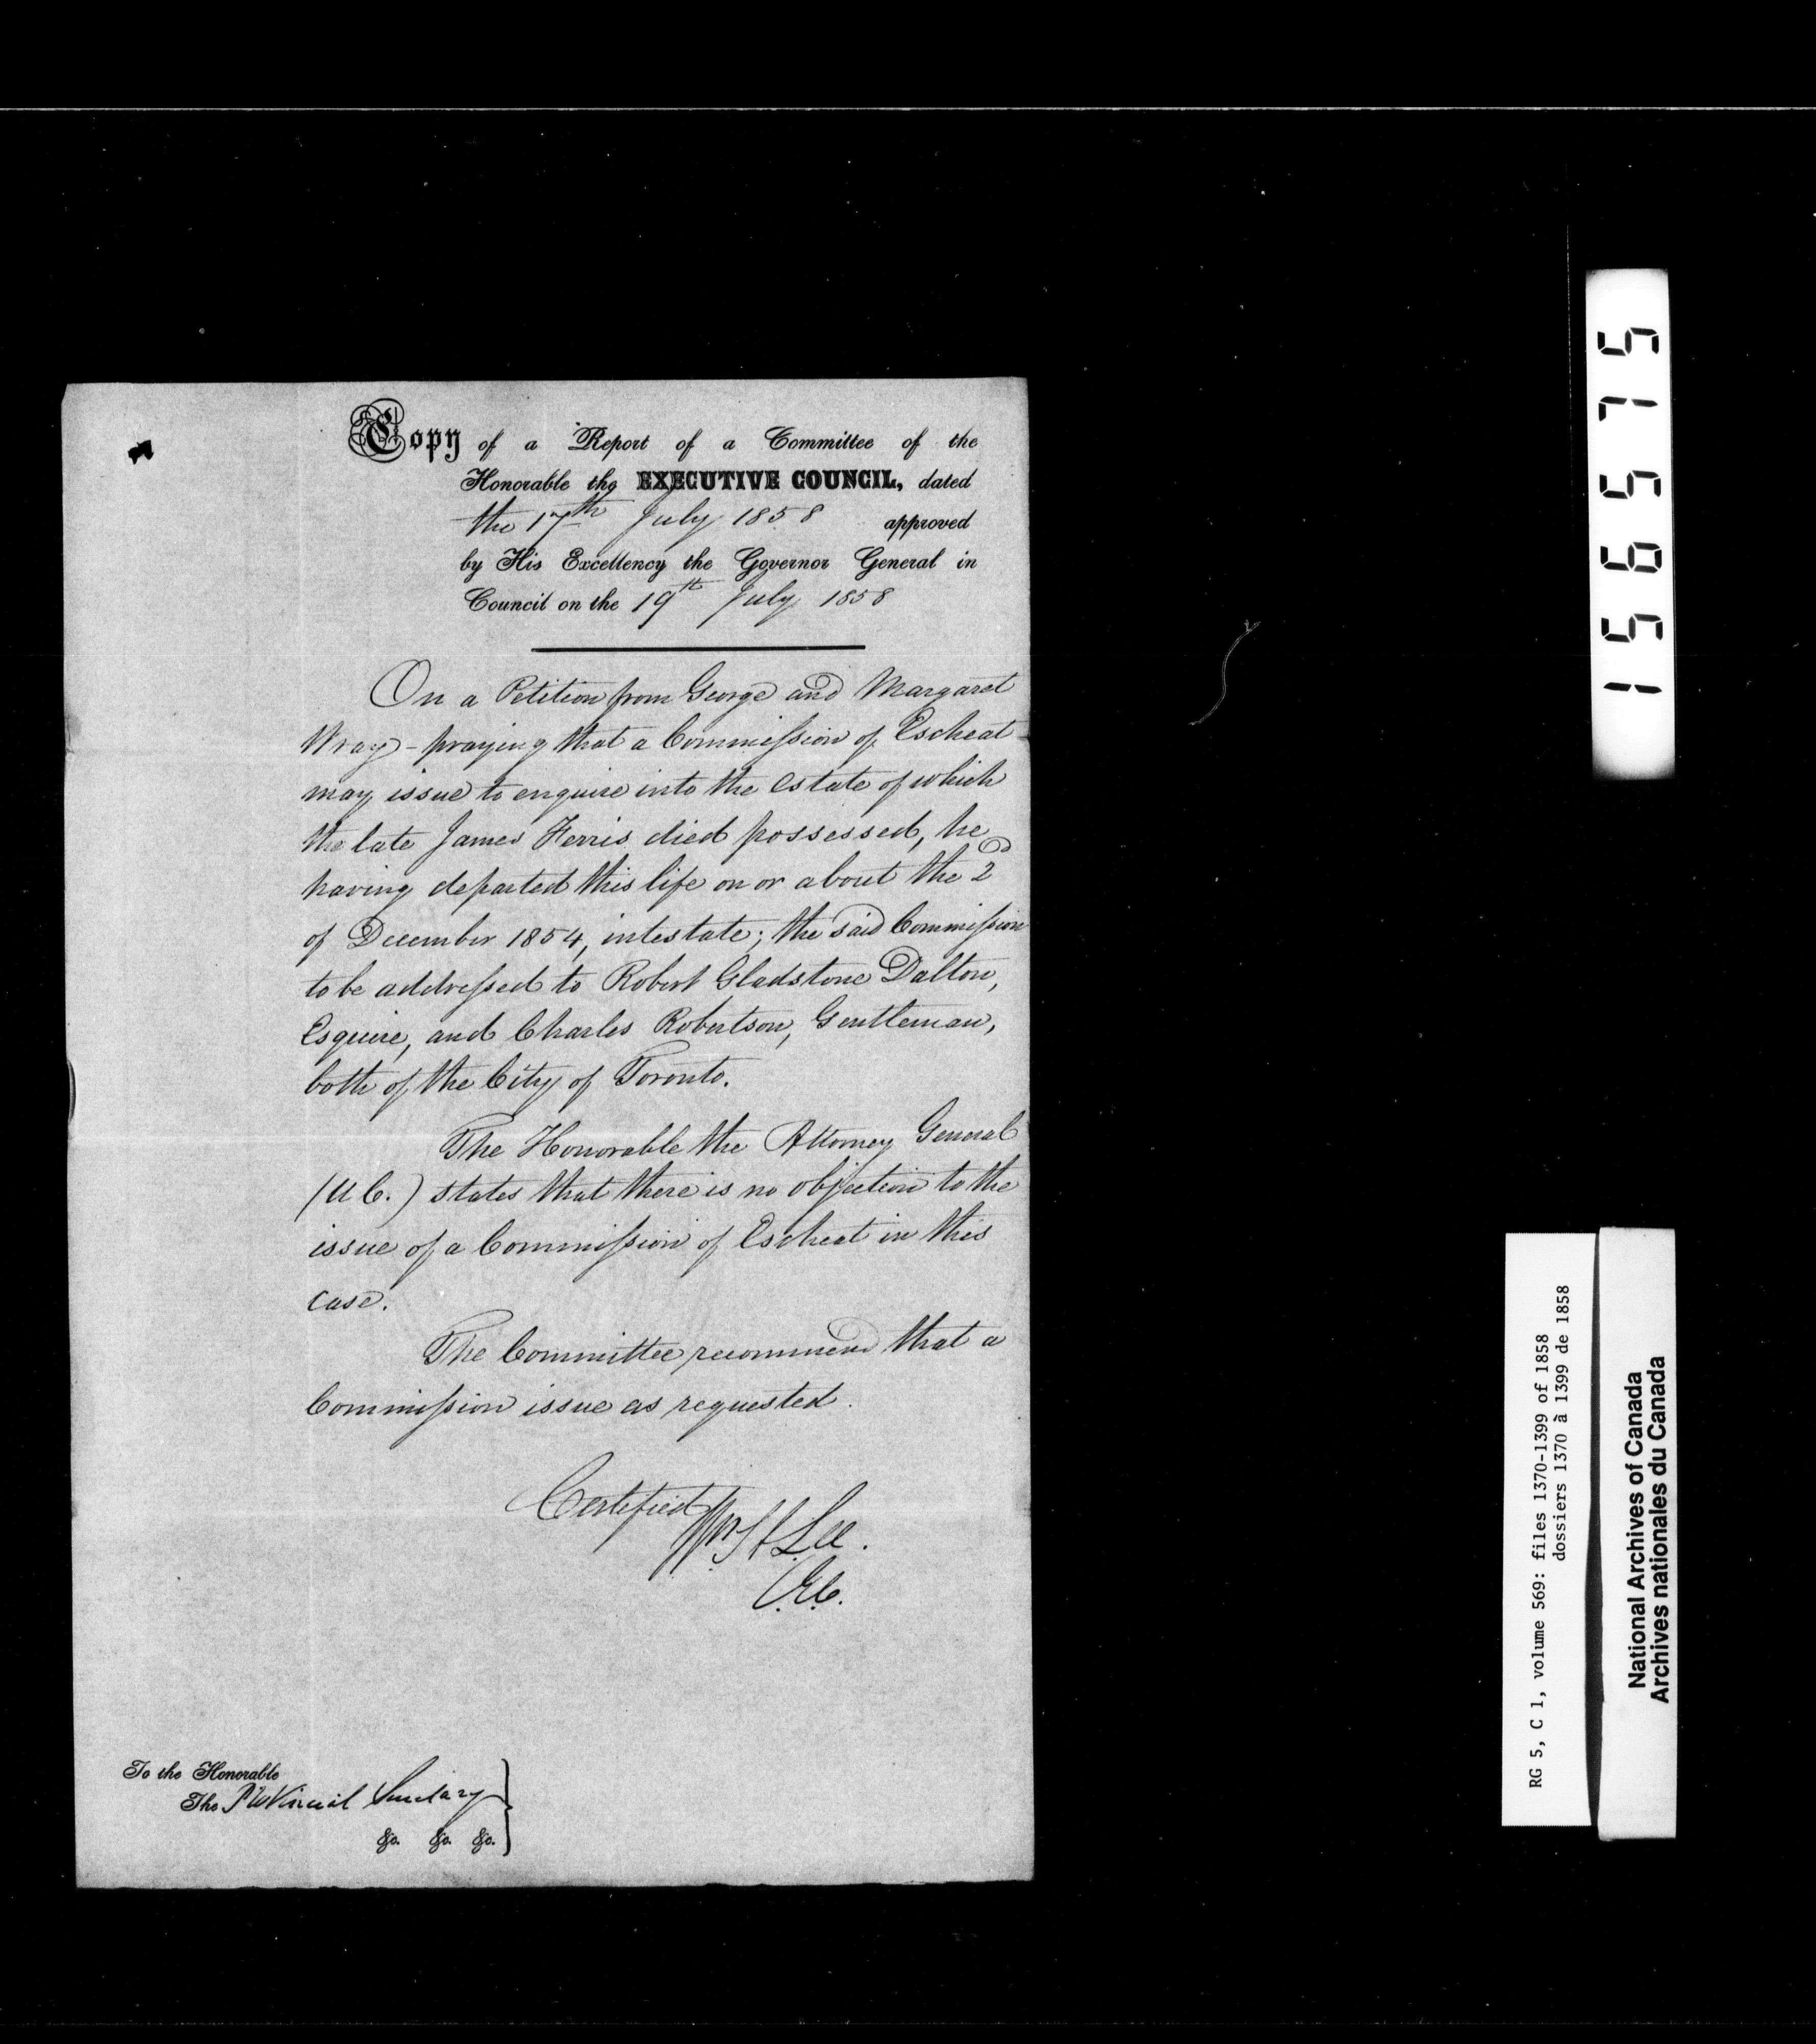 Copy of a Report of a Committee of the
Honorable the EXECUTIVE COUNCIL, dated
the 17th July 1858 approved
by His Excellency the Governor General in
Council on the 19th July 1858
On a Petition from George and Margaret
Wray - praying that a Commission of Escheat
may issue to enquire into the estate of which
the late James Ferris died possessed, he
having departed this life on or about the 2d
of December 1854, intestate; the said Commission
to be addressed to Robert Gladstone Dalton,
Esquire, and Charles Robertson, Gentleman,
both of the City of Toronto.
The Honorable the Attorney General
(U C.) states that there is no objection to the
issue of a Commission of Escheat in this
case.
The Committee recommend that a
Commission issue as requested.
Certified
Wm H Lee.
C.E.C.
To the Honorable
The Provincial Secretary
&c. &c. &c.
156575
RG 5, C 1, volume 569: files 1370-1399 of 1858
dossiers 1370 à 1399 de 1858
National Archives of Canada
Archives nationales du Canada